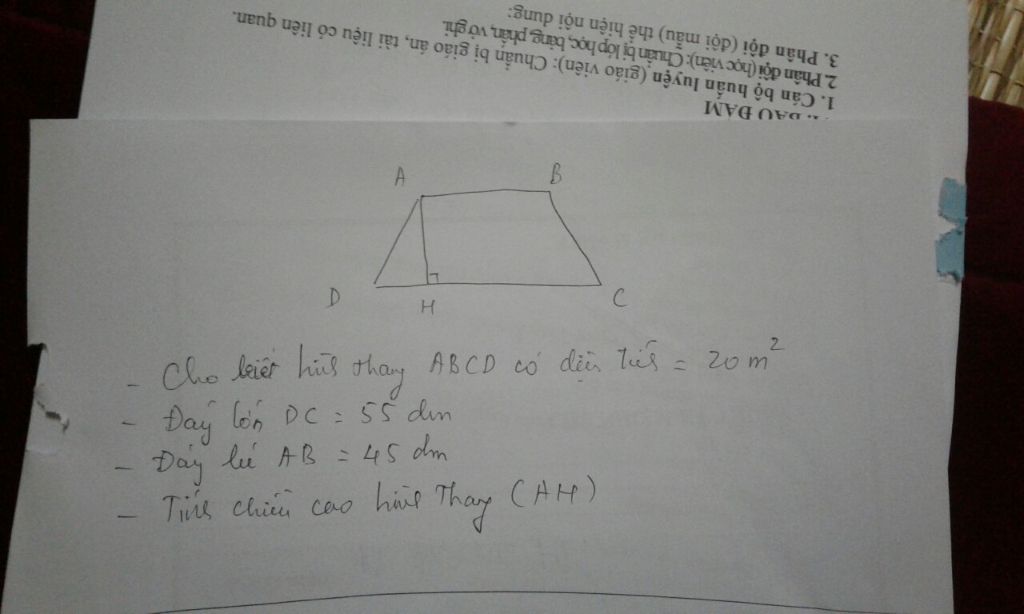 3. Phân đội (đội mẫu) thể hiện nội dung:
2. Phân đội (học viên): Chuẩn bị lớp học, bảng, phấn, vở ghi.
1. Cán bộ huấn luyện (giáo viên): Chuẩn bị giáo án, tài liệu có liên quan
BẢO ĐẢM
A B
D H C
- Cho biết hình thang ABCD có diện tích = 20 m²
- Đáy lớn DC = 55 dm
- Đáy bé AB = 45 dm
- Tính chiều cao hình thang (AH)